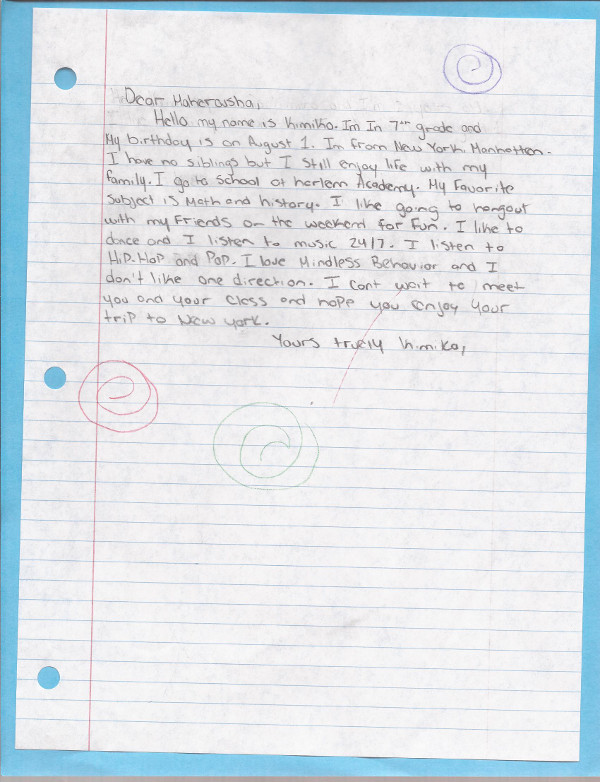 Dear Maherausha,
Hello my name is Kimiko. Im In 7th grade and
My birthday is on August 1. Im From New York, Manhatten.
I have no siblings but I still enjoy life with my
family. I go to School at harlem Academy. My Favorite
Subject is Math and history. I like going to hangout
with my Friends on the weekend for Fun. I like to
dance and I listen to music 24/7. I listen to
Hip-Hop and Pop. I love Mindless Behavior and I
don't like one direction. I cant wait to meet
you and your Class and hope you enjoy your
trip to New York.
Yours truely Kimiko,